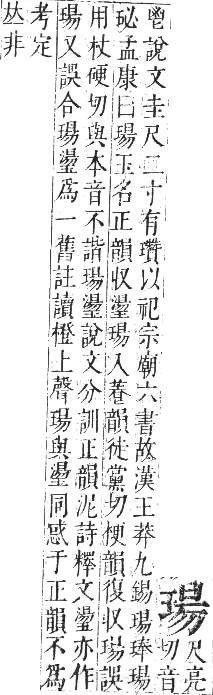 瑒
尺亮
切音
鬯說文圭尺二寸有瓚以祀宗廟六書故漢王莽九錫瑒琫瑒
珌孟康曰瑒玉名正韻收璗瑒入養韻徒黨切梗韻復收瑒誤
用杖硬切與本音不諧瑒璗說文分訓正韻泥詩釋文璗亦作
瑒又誤合瑒璗爲一舊註讀橙上聲瑒與璗同惑于正韻不爲
考定
𠀤非